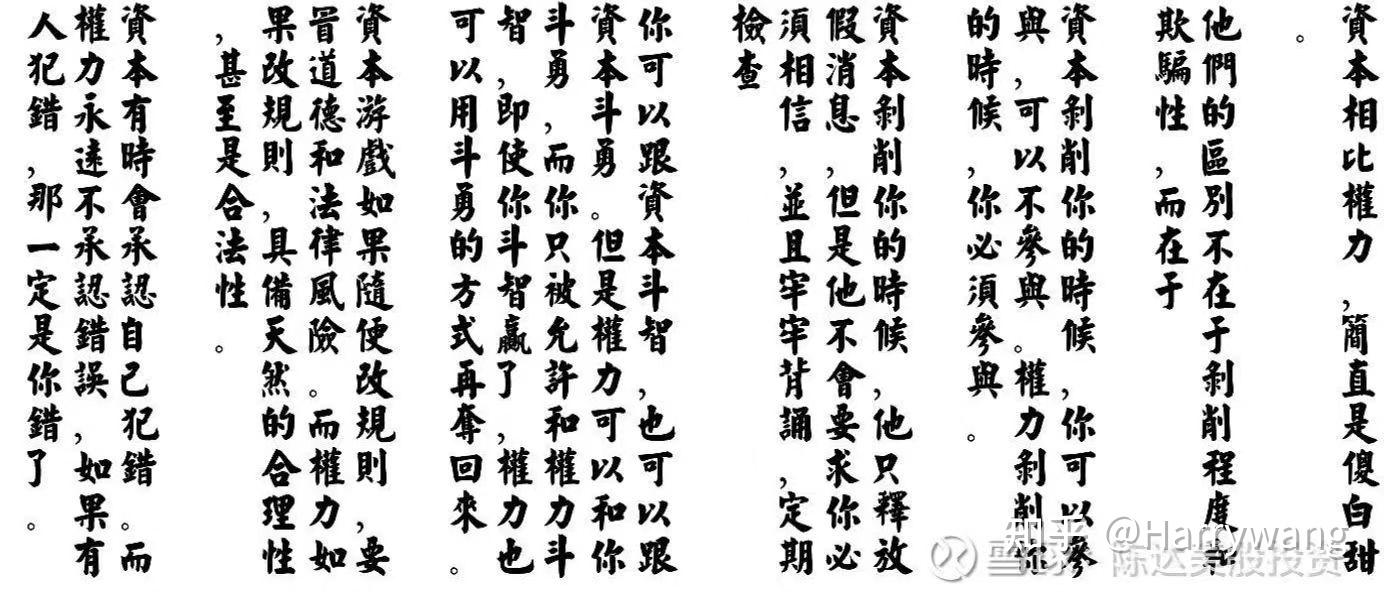 資本相比權力,簡直是傻白甜
。
他們的區別不在于剝削程度和
欺騙性,而在于
資本剝削你的時候,你可以參
與,可以不參與。權力剝削你
的時候,你必須參與。
資本剝削你的時候,他只釋放
假消息,但是他不會要求你必
須相信,並且牢牢背誦,定期
檢查
你可以跟資本斗智,也可以跟
資本斗勇。但是權力可以和你
斗勇,而你只被允許和權力斗
智,即使你斗智贏了,權力也
可以用斗勇的方式再奪回來。
資本游戲如果隨便改規則,要
冒道德和法律風險。而權力如
果改規則,具備天然的合理性
,甚至是合法性。
資本有時會承認自己犯錯。而
權力永遠不承認錯誤,如果有
人犯錯,那一定是你錯了。
知乎 @Harrywang
雪球: 陈达美股投资